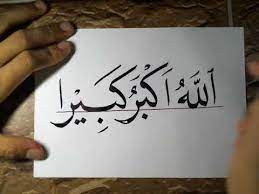 اَللّٰهُ اَكْبَرُ كَبِيْرًا